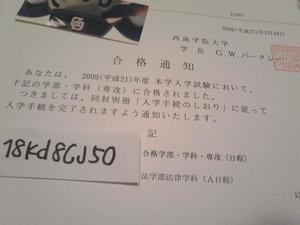 2009(平成21)年2月24日
西南学院大学
学長 G.W.バークレー
合格通知
あなたは、2009(平成21)年度 本学入学試験において、
下記の学部・学科(専攻)に合格されました。
つきましては、同封別冊「入学手続のしおり」に従って
入学手続を完了されますよう通知いたします。
記
18Kd8CJ50
合格学部・学科・専攻(日程)
法学部法律学科(A日程)